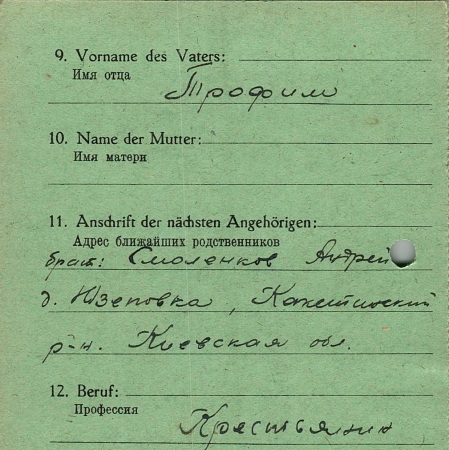 9. Vorname des Vaters:
Имя отца
Трофим
10. Name der Mutter:
Имя матери
11. Anschrift der nächsten Angehörigen:
Адрес ближайших родственников
брат: Смоленков Андрей
д. Юзеповка,
р-н. Киевская обл.
12. Beruf:
Профессия
Крестьянин